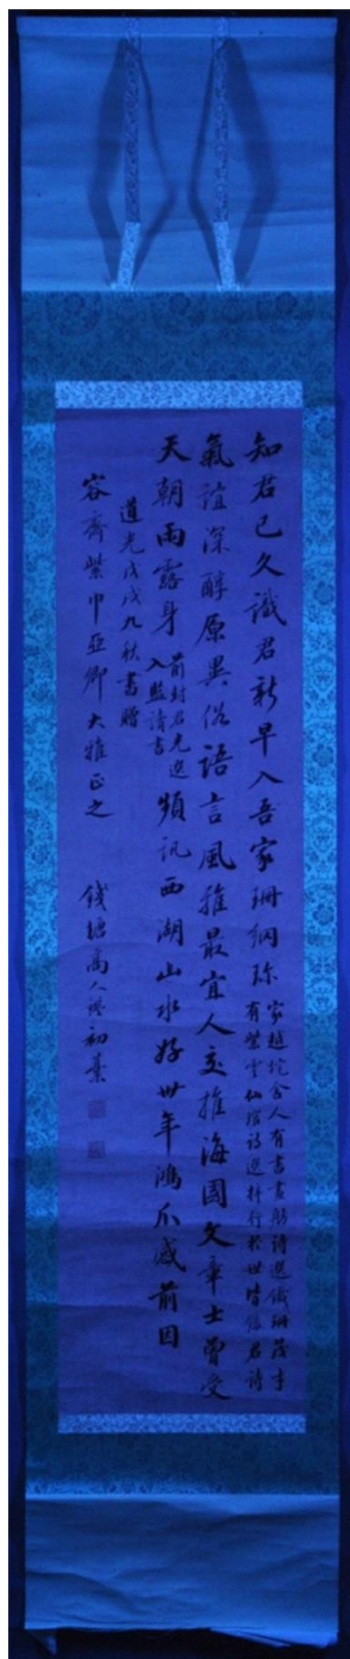 知君已久識君新早入吾家珊網珎家越垞舍人有書畫舫詩選鐵珊茂才
有紫雲仙館詩選并行於世皆錄君詩
氣誼深醇原異俗語言風雅最宜人交推海國文章士曾受
天朝雨露身前封君先選
入監請書頻訊西湖山水好卅年鴻爪感前因
道光戊戌九秋書贈
容齋紫巾亞卿大雅正之
錢塘高人初藁